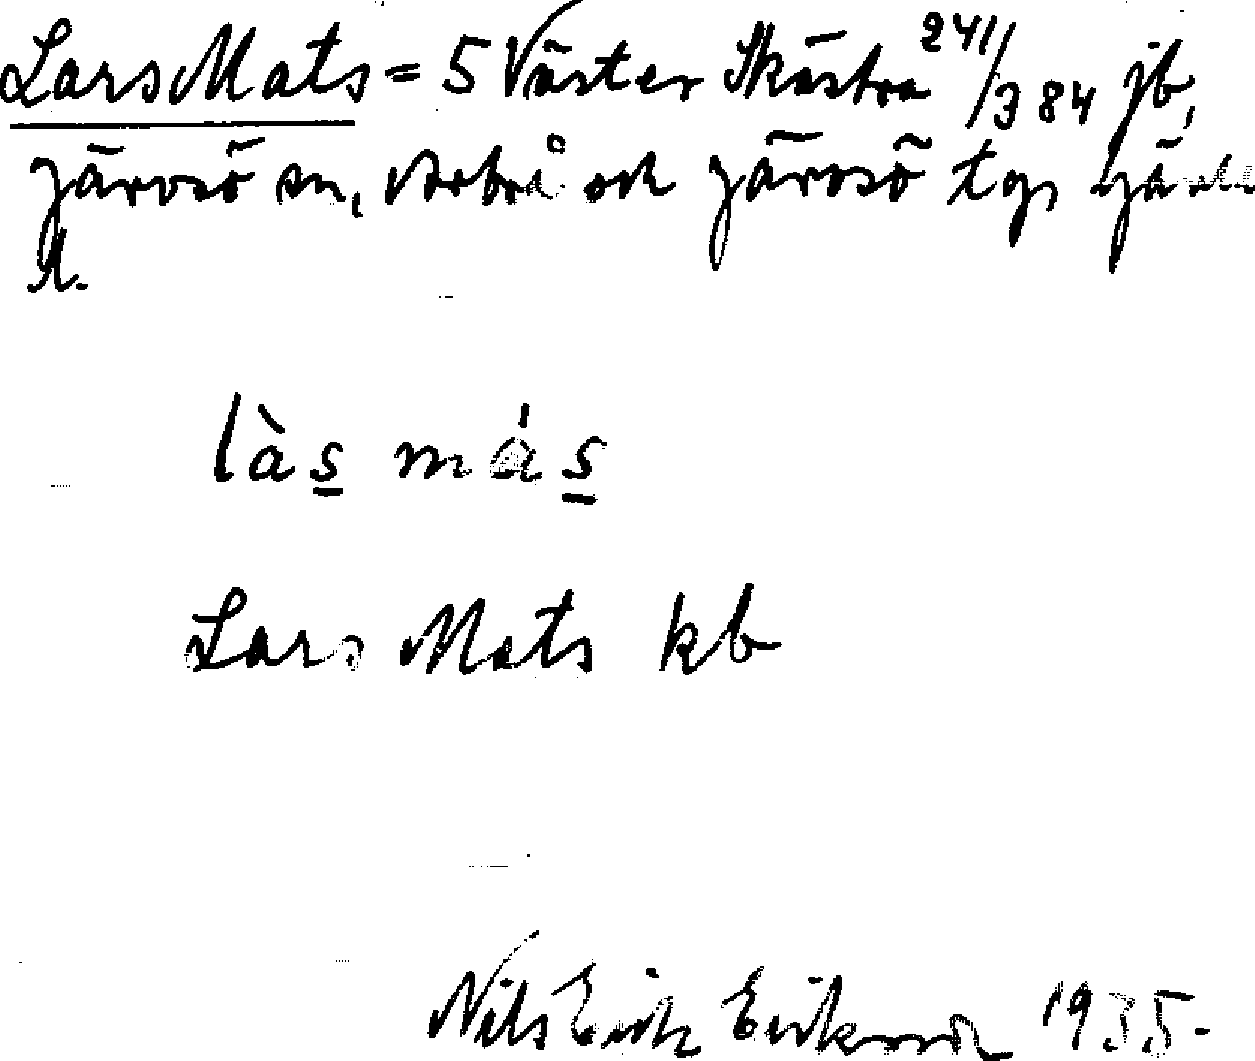 Lars Mats = 5 Väster Skästra 241/384 jb,
Järvsö sn, Arbrå och Järvsö tg, Gävleb.
l.
làs más
Lars Mats kb
Nils Erik Eriksson 1935.